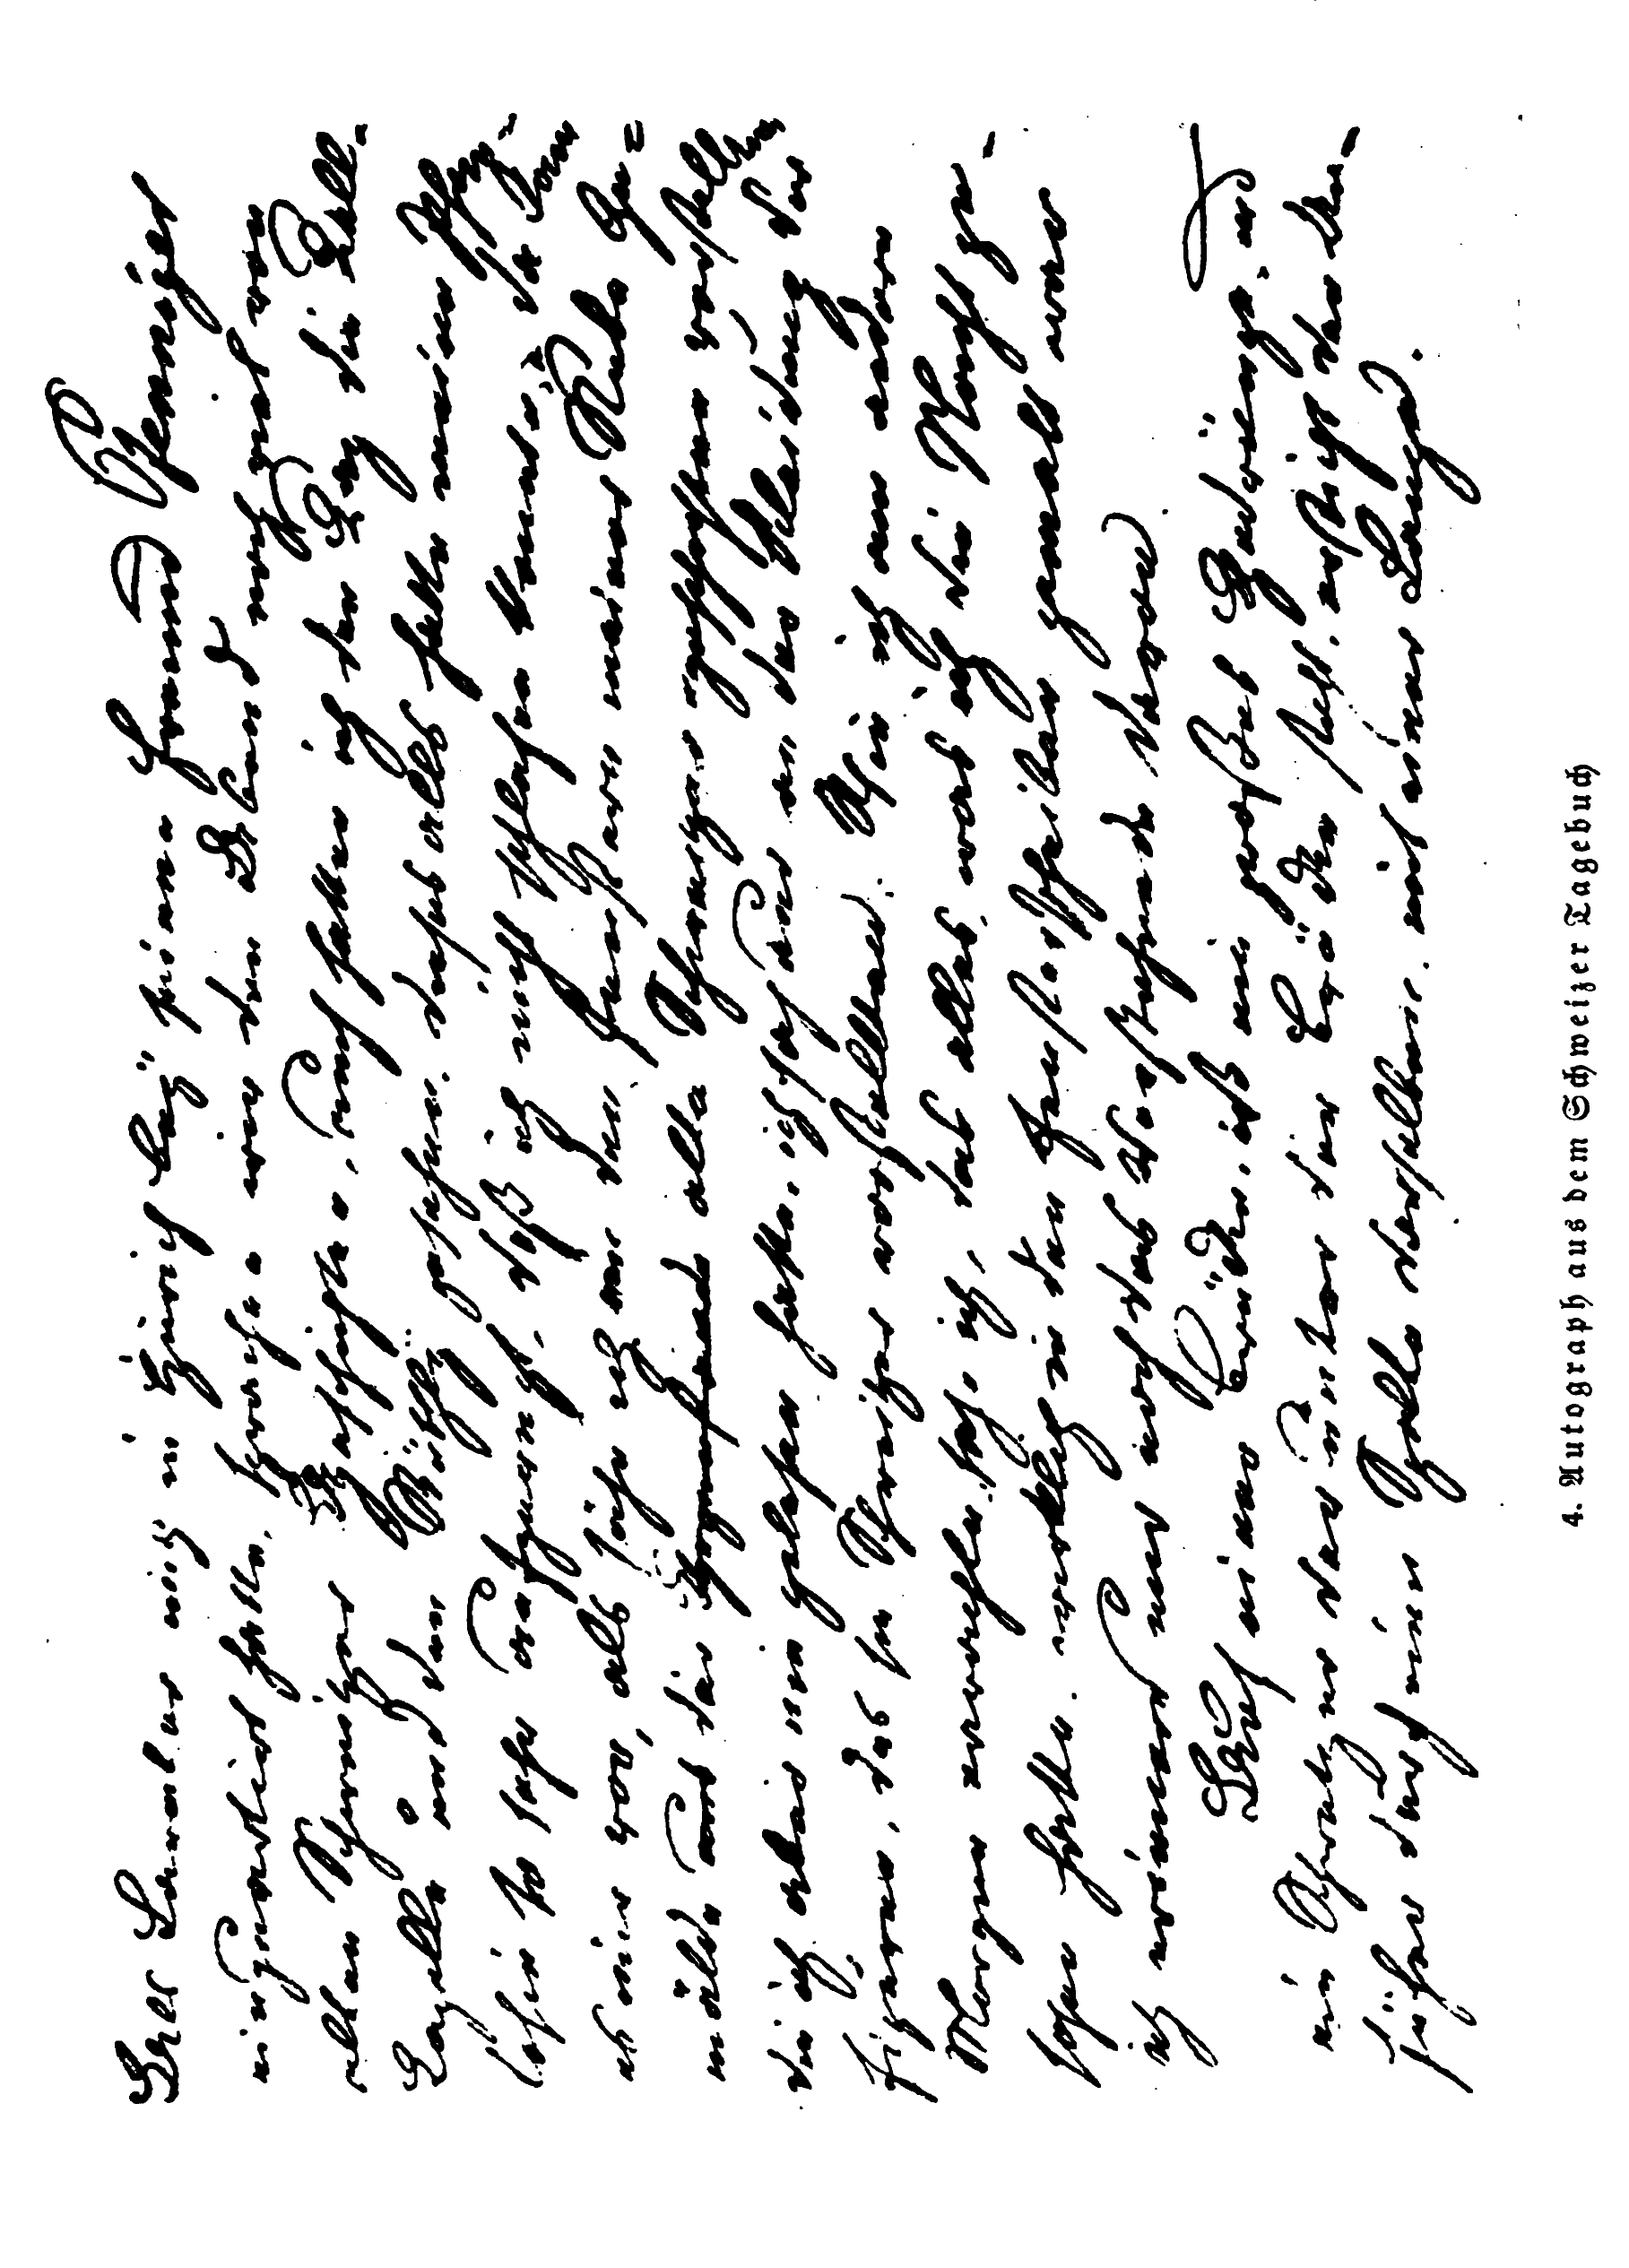 Herr Lavater mich in Zürich bey seinem Freund Pfenniger
einquartirt hatte, sprachen wir den Abend noch viel von
alten Schweizer Geschichten, auch hatten wir den Tag die Tell-
Capelle und den Rüthly gesehen. dieses alles hatte meinen
so sehr daß ich nicht schlafen konnte. da kam
es mir vor, als sähe ich an den Fenstern meiner Stube Ge-
mälde und die alle Schweizer geschichten vorstellten
die ich gelesen hatte. ich sah an der Kleidung der
Figuren, das sie Schweizer vorstellten. Als ich am andern
Morgen erwachte, sah ich, das alles was ich die Nacht ge-
sehen hatte, wirklich in den Fensterscheiben gemalt war
ich erinnere noch das davon
Auf einer Brücke, ist ein großes Gedränge, und
ein Schweizer der unter der Brücke steht, ersticht den An-
führer durch eine derselben mit einer Lanze.
4. Autograph aus dem Schweizer Tagebuch